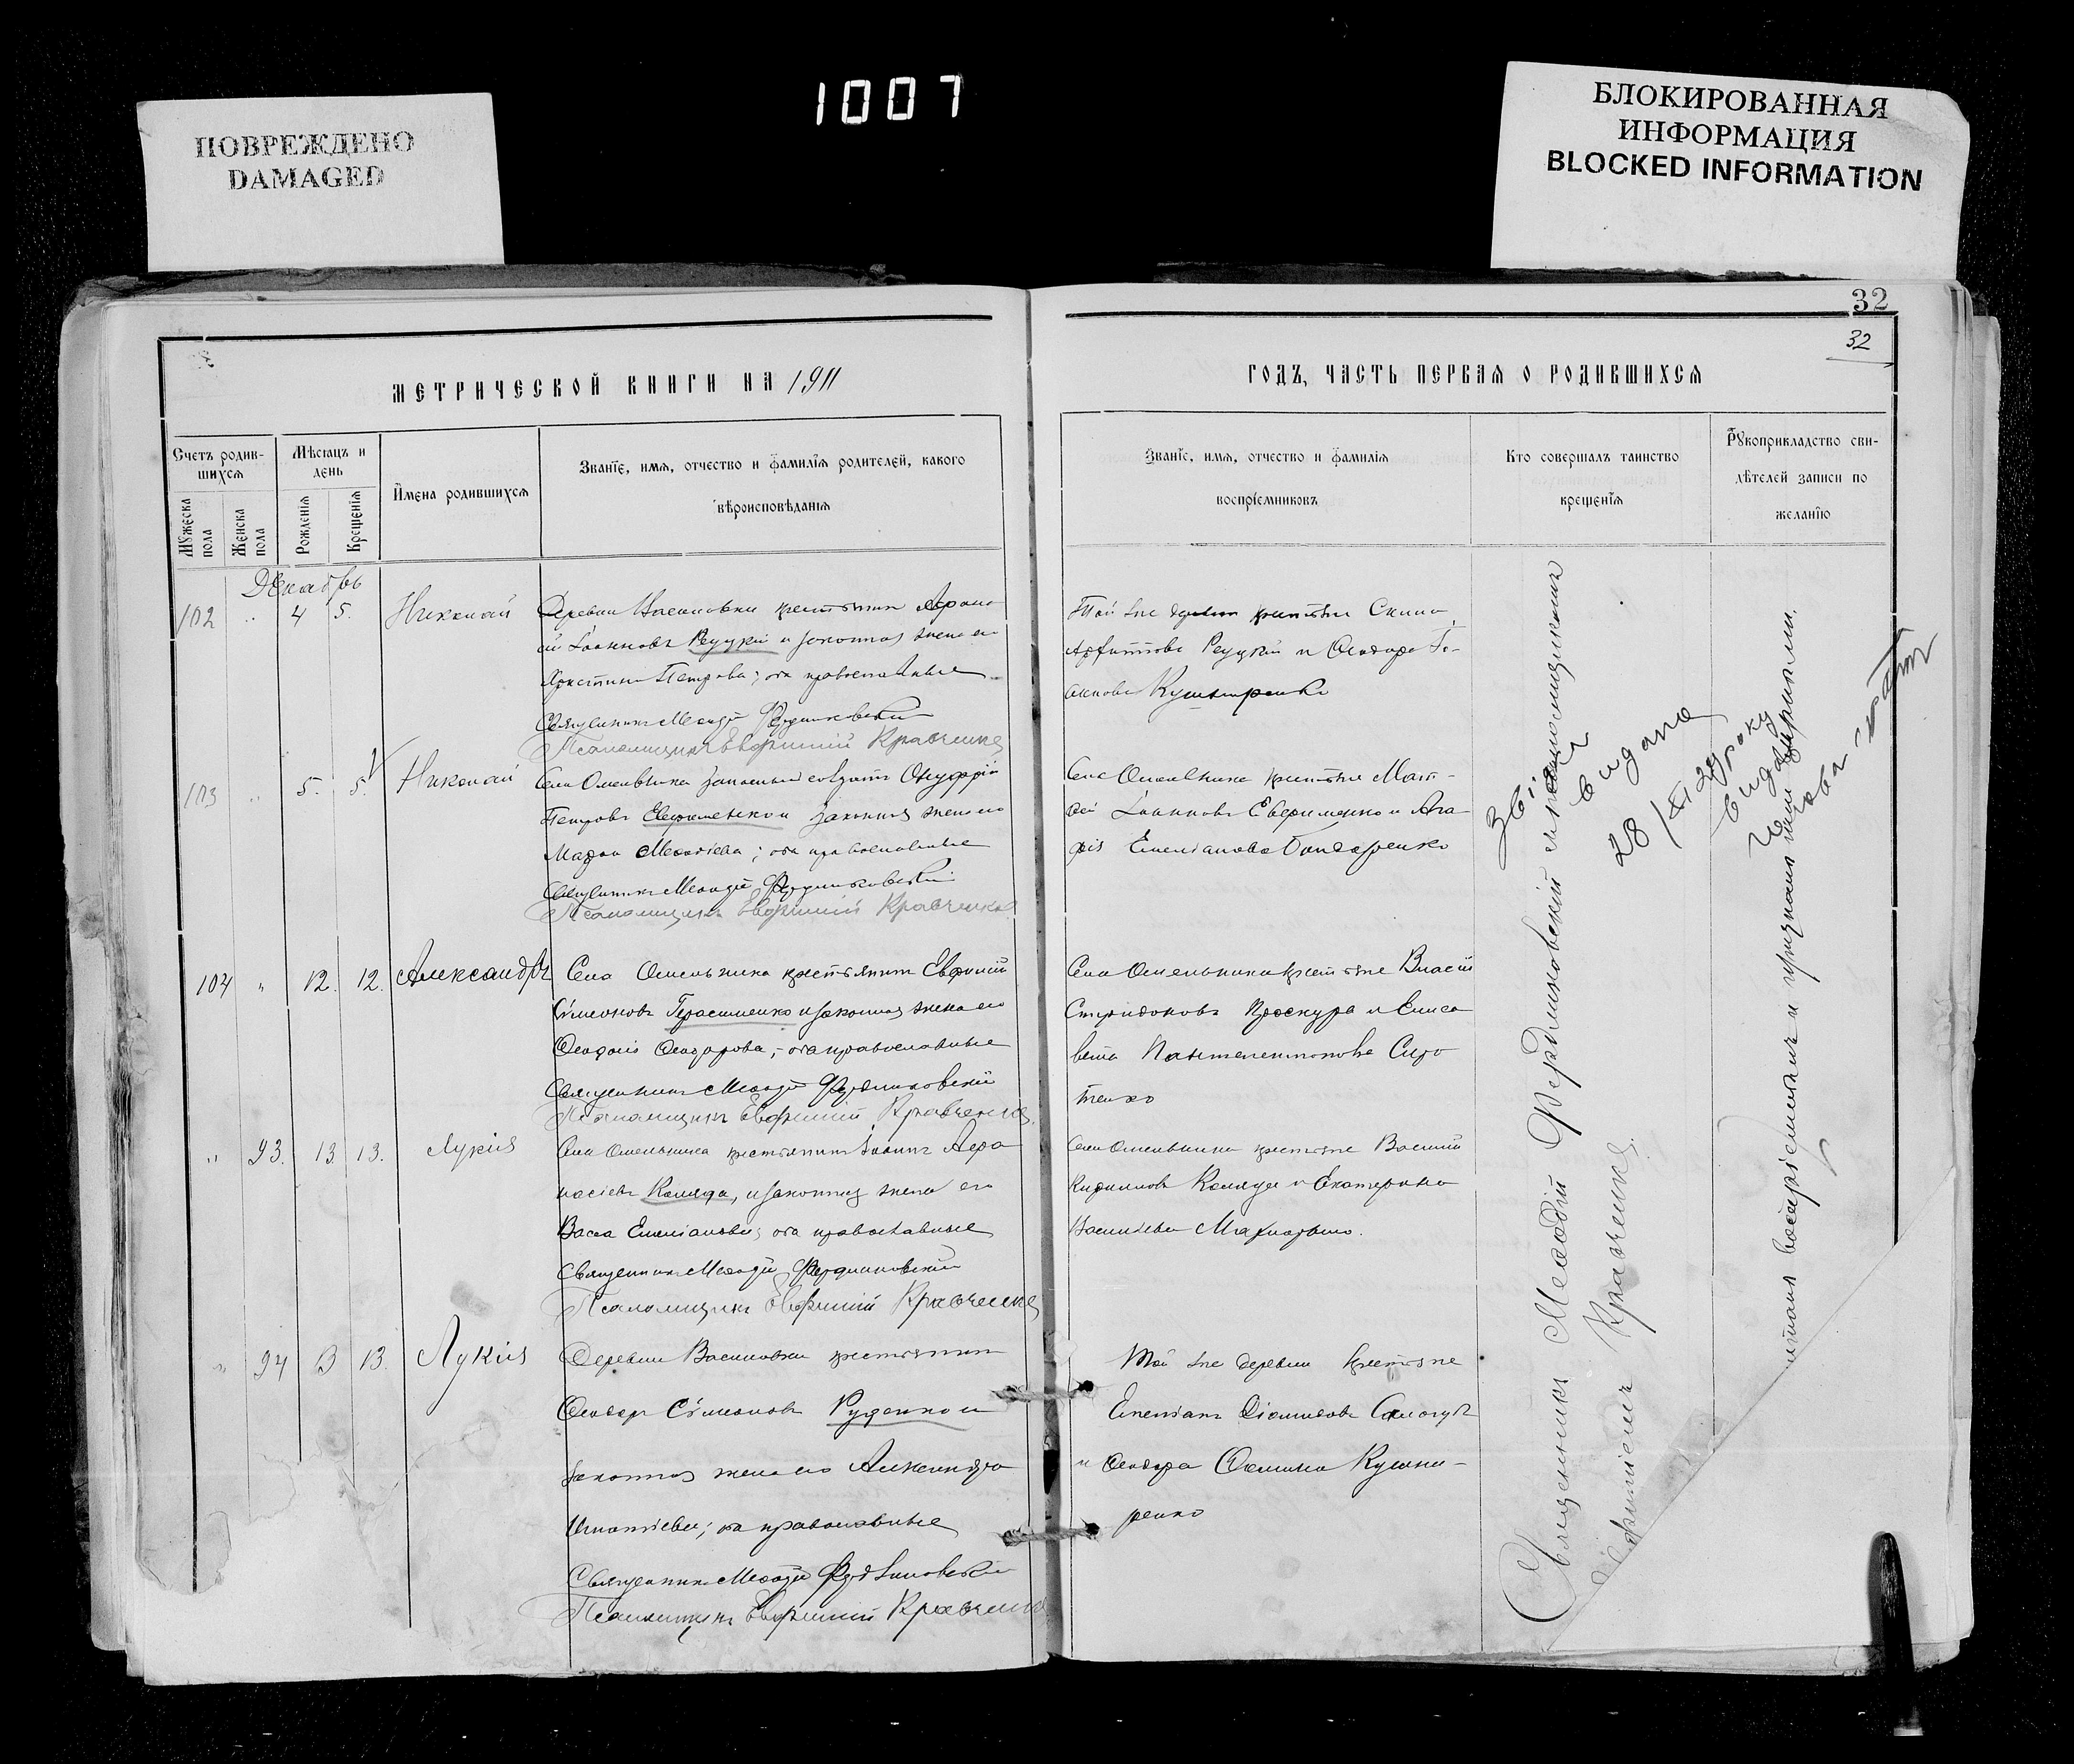 1007
ПОВРЕЖДЕНО
DAMAGED
БЛОКИРОВАННАЯ
ИНФОРМАЦИЯ
BLOCKED INFORMATION
32
32
МЕТРИЧЕСКОЙ КНИГИ НА 1911
ГОДЪ, ЧАСТЬ ПЕРВАЯ О РОДИВШИХСЯ
Счетъ родив-
шихся
Мужеска
пола
Женска
пола
Мѣсяцъ и
день
Рожденія
Крещенія
Имена родившихся
Званіе, имя, отчество и фамилія родителей, какого
вѣроисповѣданія
Званіе, имя, отчество и фамилія
воспріемниковъ
Кто совершалъ таинство
крещенія
Рукоприкладство сви-
дѣтелей записи по
желанію
Декабрь
102 " 4 5. Николай
Деревни Василовки крестьянинъ Афана
ій Іоанновъ Редукій и законная жена его
Христина Петрова; оба православные
Священникъ Меѳодій Фердинковскій
Псаломщикъ Евфимій Кравченко
Той же деревни крестьяне
Редукій и Ѳеодора Іо-
аннова Кушниренко
103 " 5. 5. Николай
Села Омельника запасный солдатъ Онуфрій
Петровъ Евфименко и законная жена его
Марѳа Меѳодіева; оба православные
Священникъ Меѳодій Фердинковскій
Псаломщикъ Евфимій Кравченко
Села Омельника крестьяне Мат-
ѳей Іоанновъ Евфименко и Ага-
фія Емеліанова Бондаренко
104 " 12. 12. Александръ
Села Омельника крестьянинъ Евфимій
Сѵмеоновъ Герасименко и законная жена его
Ѳеофанія Ѳеодорова,- оба православные
Священникъ Меѳодій Фердинковскій
Псаломщикъ Евфимій Кравченко
Села Омельника крестьяне Власій
Спиридоновъ Проскура и Елиса
вета Пантелеимонова Сиро
тенко
" 93. 13. 13. Лукія
Села Омельника крестьянинъ Іоаннъ Афа
насіевъ Коляда, и законная жена его
Васса Емеліанова; оба православные
Священникъ Меѳодій Фердинковскій
Псаломщикъ Евфимій Кравченко
Села Омельника крестьяне Василій
Кирилловъ Коляда и Екатерина
Василіева
" 94 13 13. Лукія
Деревни Василовки крестьянинъ
Ѳеодоръ Сѵмеоновъ Руденко и
законная жена его Александра
Игнатіева; оба православные
Священникъ Меѳодій Фердинковскій
Псаломщикъ Евфимій Кравченко
Той же деревни крестьяне
Емеліанъ Діомидовъ
и Ѳеодора Кушни-
ренко
Священникъ Меѳодій Фердинковскій съ псаломщикомъ
Евфиміемъ Кравченко.
видана
28/XI 39 року